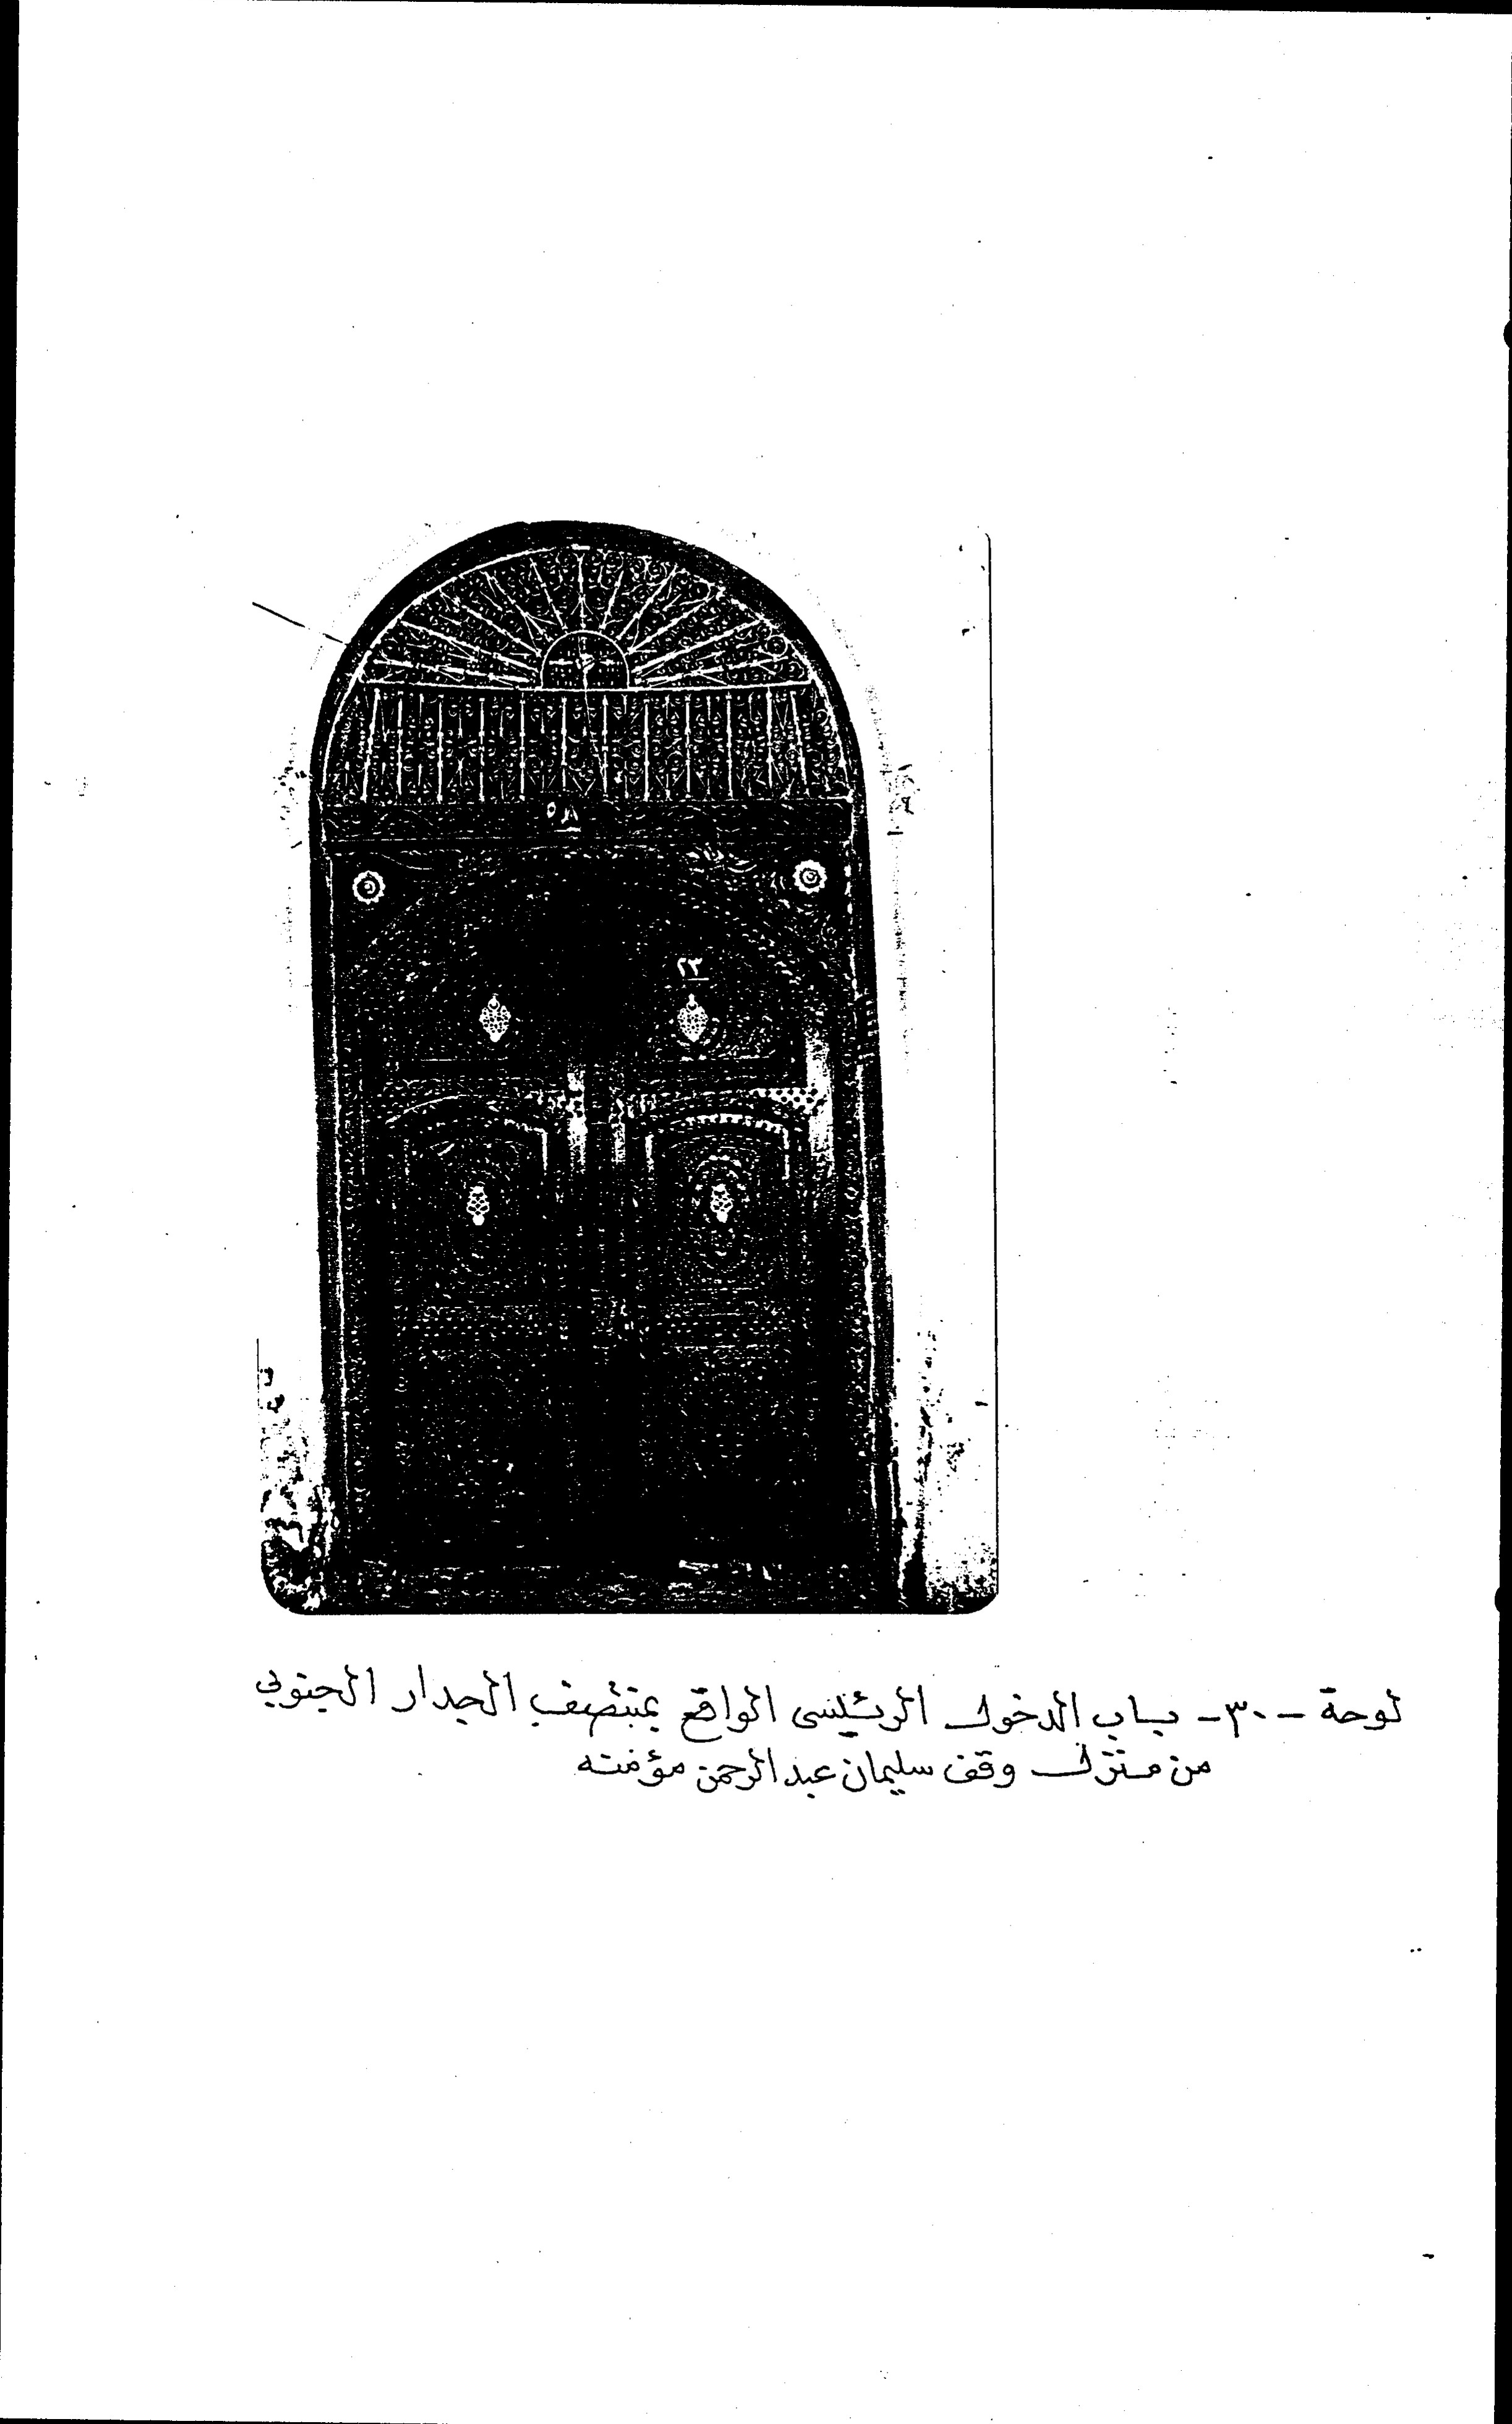 ٥٨
٢٣
لوحة -٣٠- باب الدخول الرئيسى الواقع بمنتصف الجدار الجنوبي
من منزل وقف سليمان عبد الرحمن مؤمنه